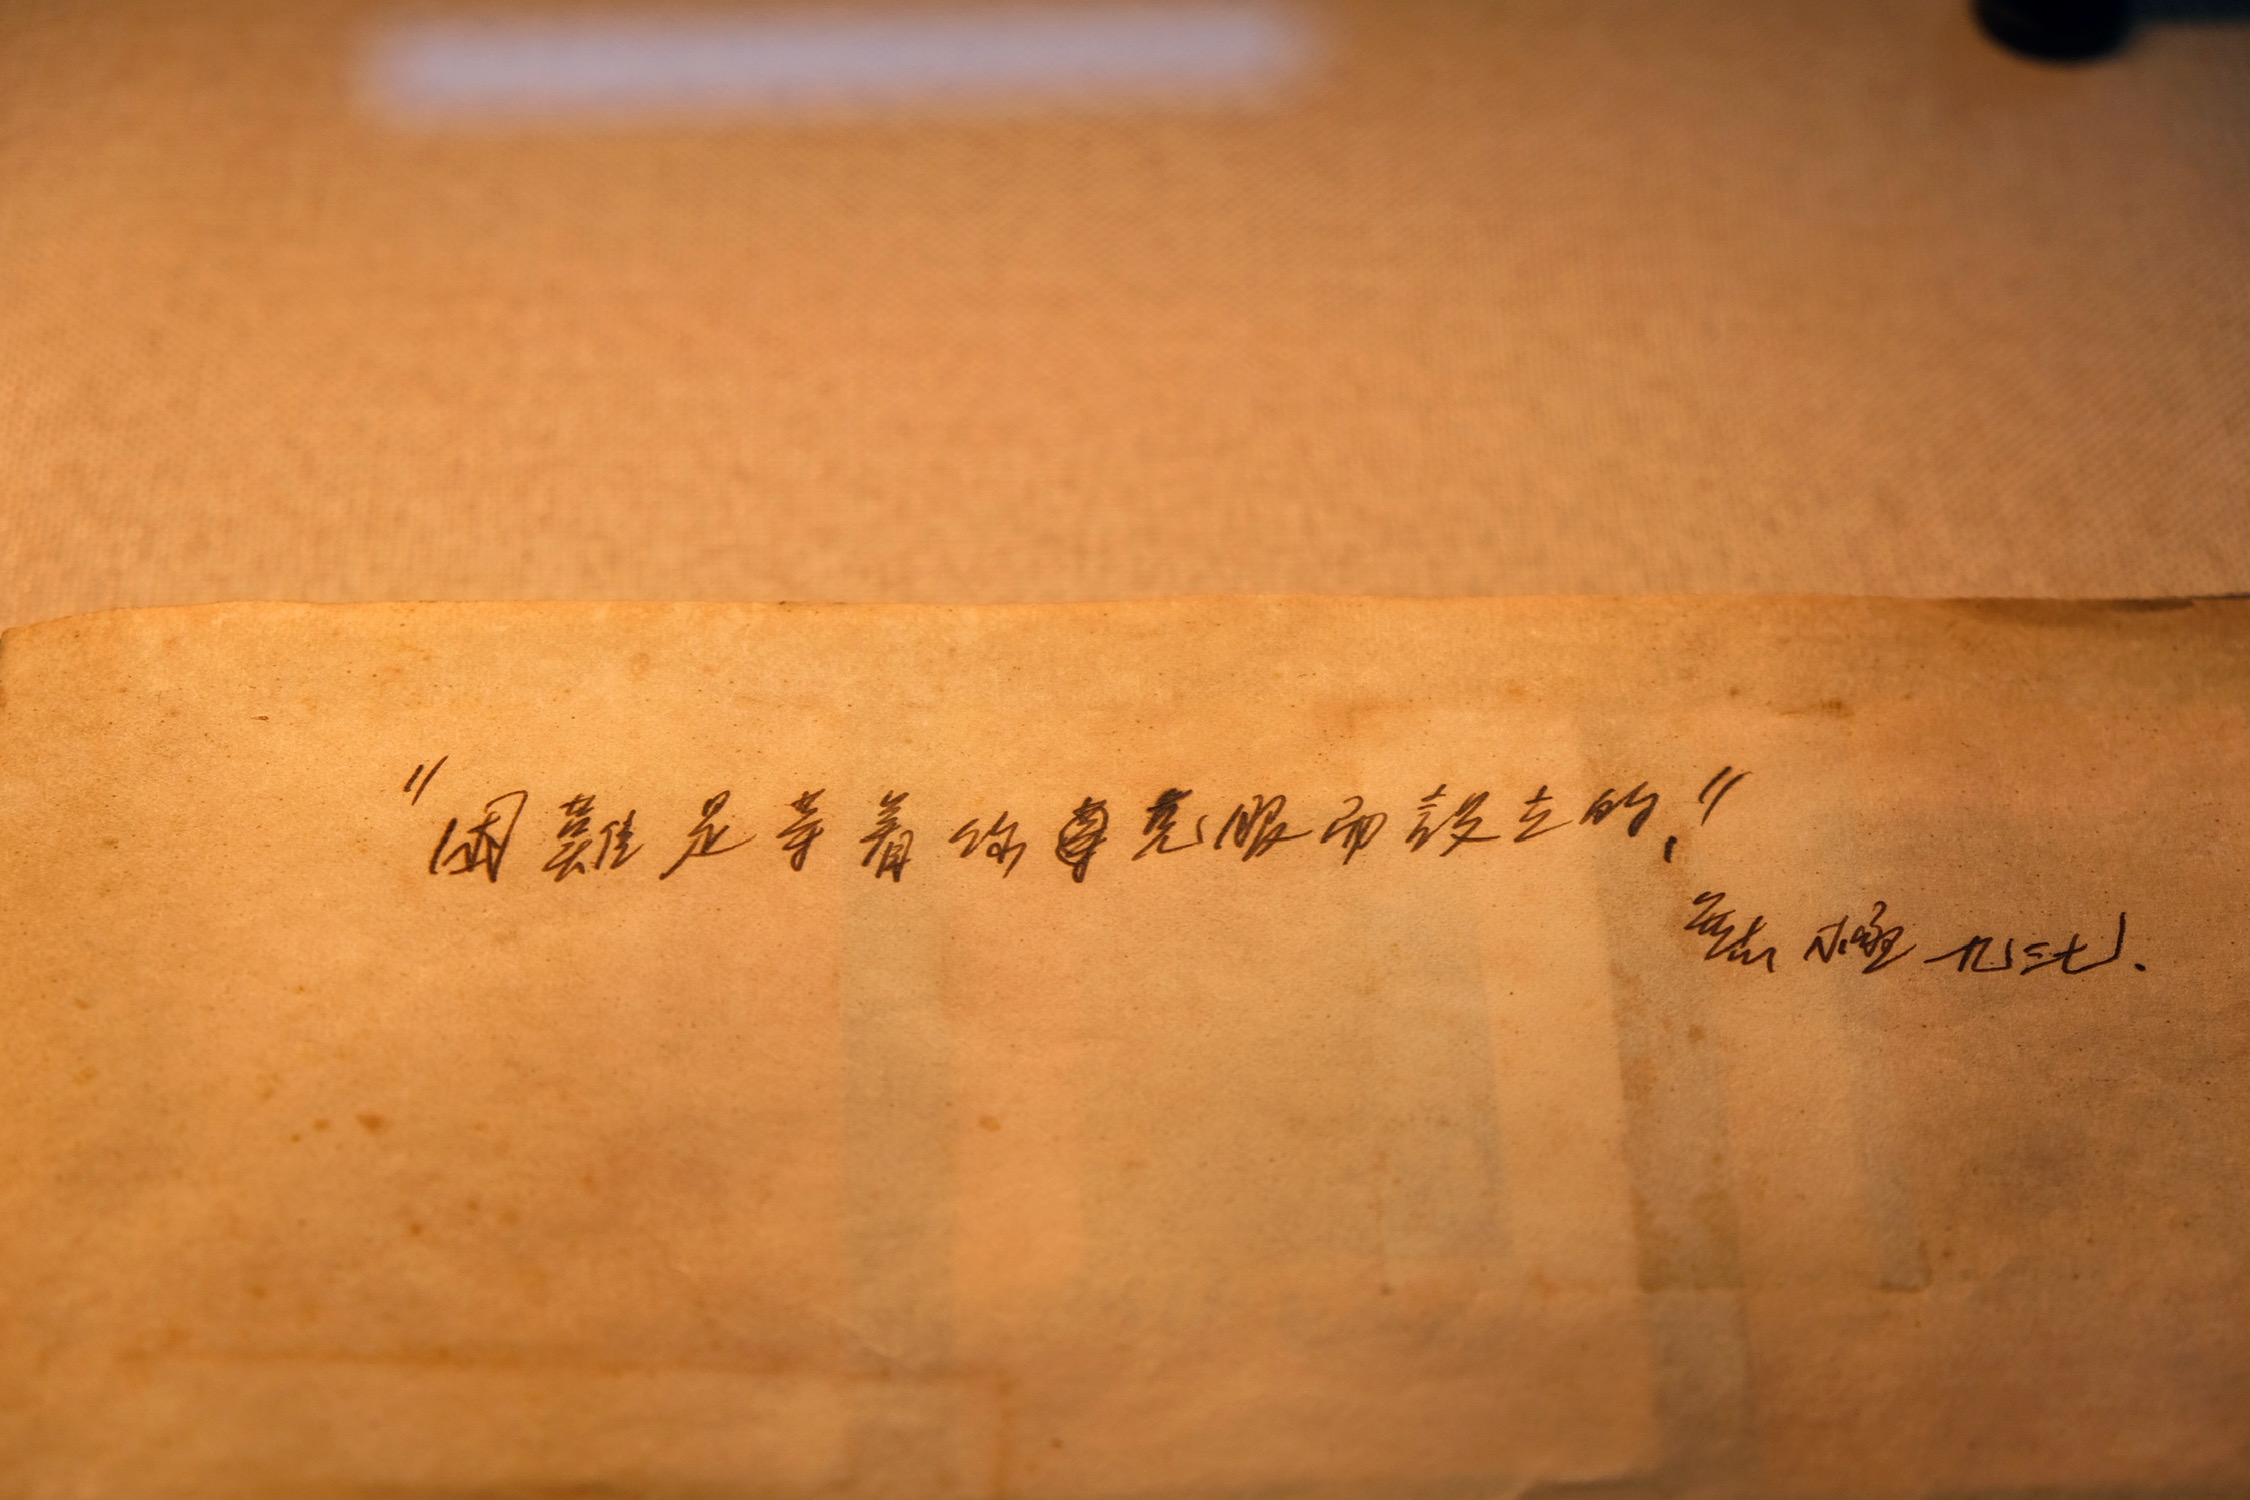 "困難是等着你克服而設立的."
九三七